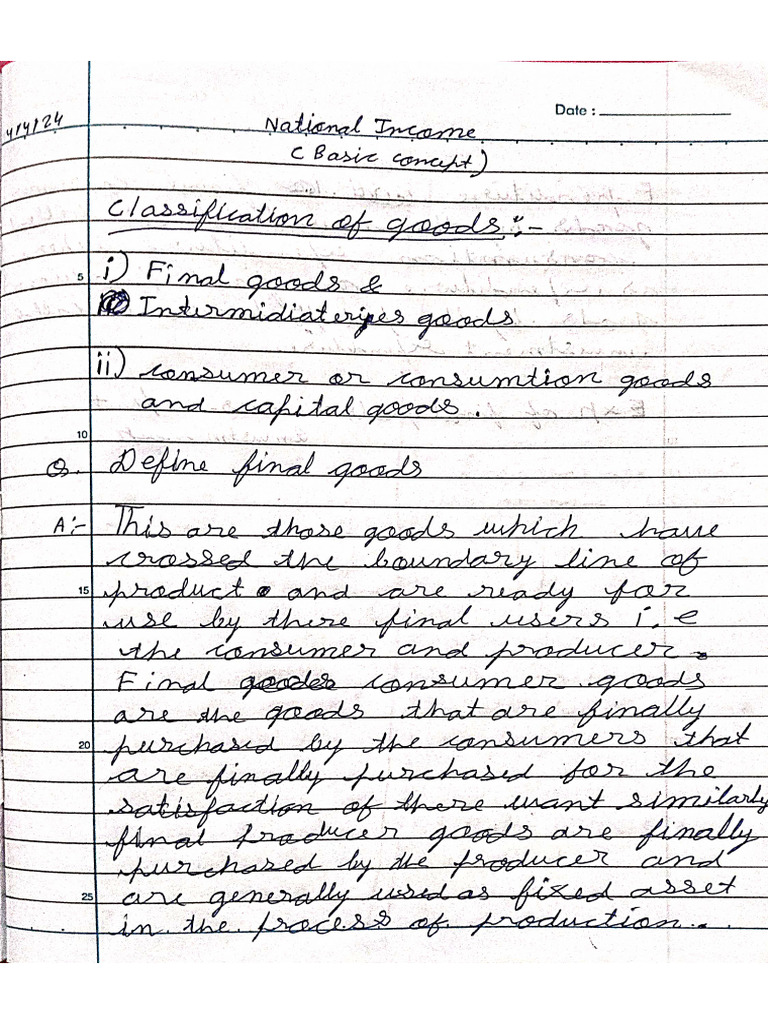 Date :
4/4/24
National Income
( Basic concept )
Classification of goods :-
5 i) Final goods &
Intermidiateries goods
ii) consumer or consumtion goods
and capital goods .
10
Q. Define final goods
A:- This are those goods which have
crossed the boundary line of
15 product and are ready for
use by there final users i.e
the consumer and producer .
Final goods consumer goods
are the goods that are finally
20 purchased by the consumers that
are finally purchased for the
satisfaction of there want similarly
final producer goods are finally
purchased by the producer and
25 are generally used as fixed asset
in the process of production .